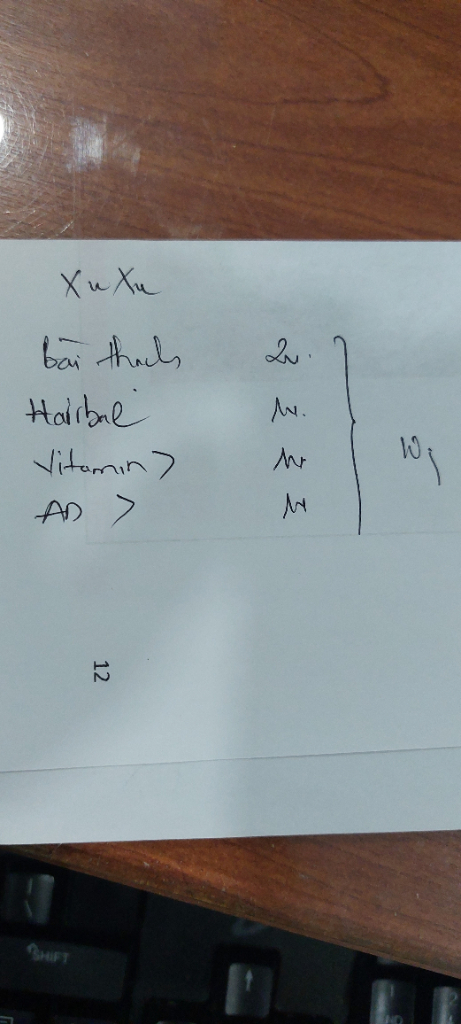 Xu Xu
bài thạch 2v.
Hairbal 1v.
Vitamin > 1v
AD > 1v
12
SHIFT